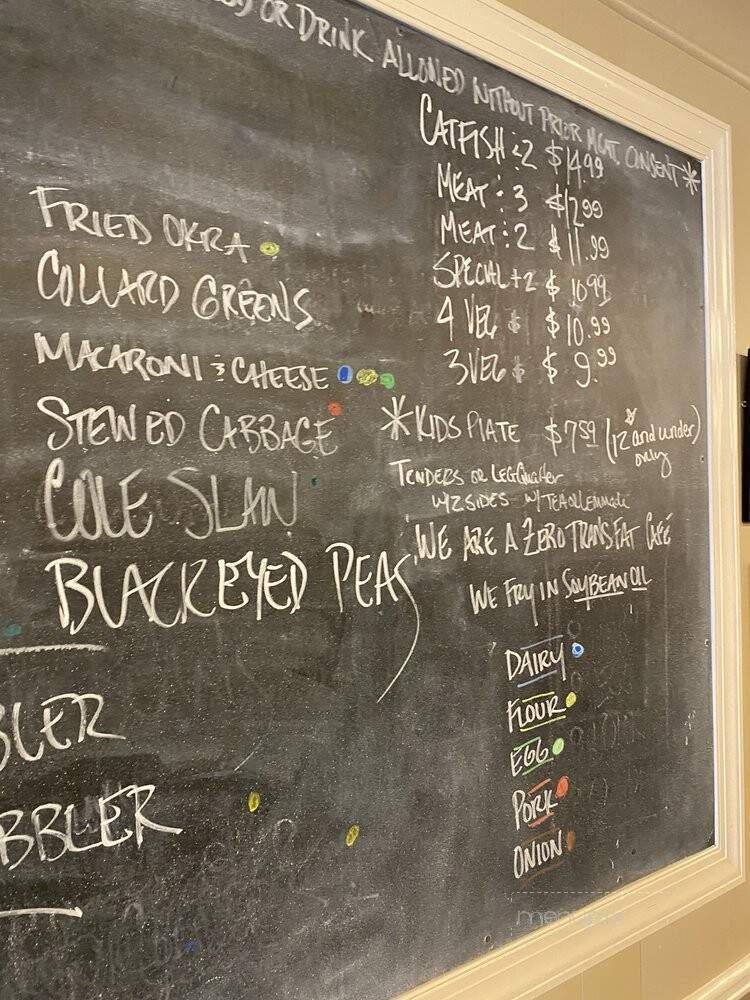 OR DRINK ALLOWED WITHOUT PRIOR MGMT. CONSENT*
FRIED OKRA
COLLARD GREENS
MACARONI & CHEESE
STEWED CABBAGE
COLE SLAW
BLACKEYED PEAS
BLER
BBLER
CATFISH:2 $14.99
MEAT:3 $12.99
MEAT:2 $11.99
SPECIAL+2 $10.99
4 VEG $ $10.99
3 VEG $ $9.99
*KIDS PLATE $7.59 (12 and under)
only
TENDERS OR LEG QUARTER
W/2 SIDES W/TEA OR LEMONADE
WE ARE A ZERO TRANS FAT CAFÉ
WE FRY IN SOYBEAN OIL
DAIRY
FLOUR
EGG
PORK
ONION